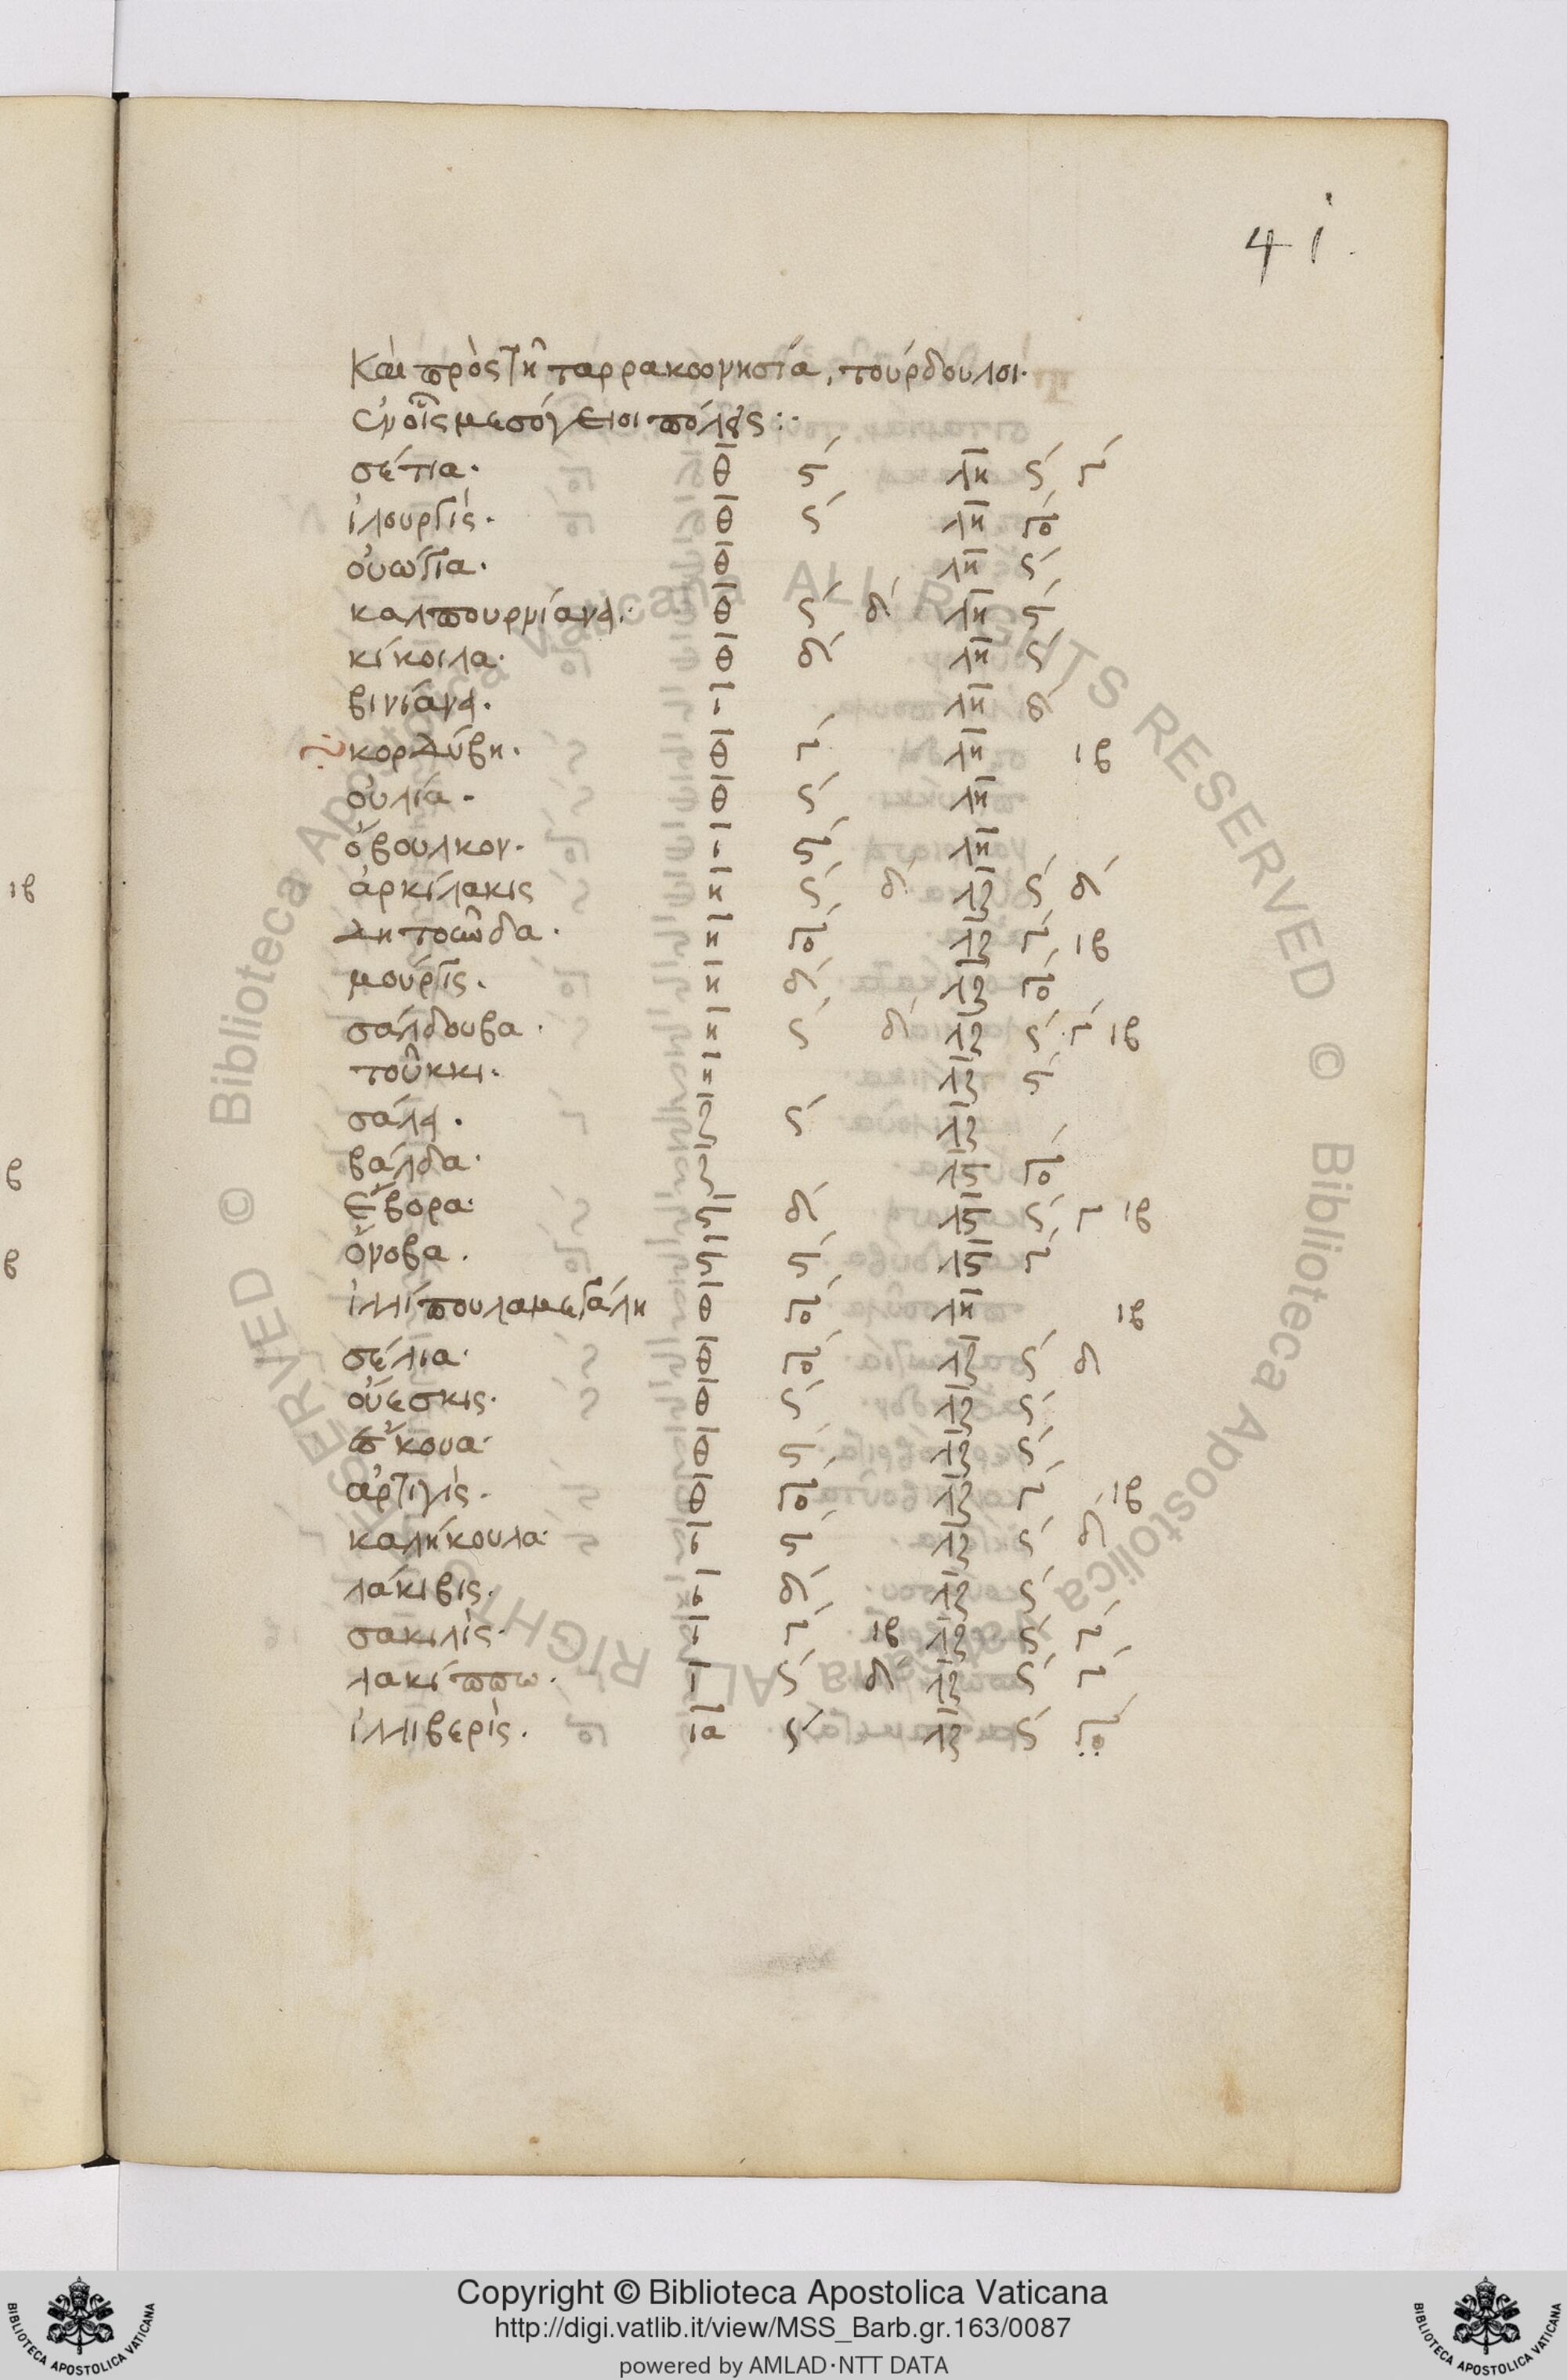 41.
Καὶ πρὸς τῆ ταρρακωνησία, τούρδουλοι·
ἐν οἷς μεσόγειοι πόλεις:·
σέτια· θ ϛ´ λη ς´ γ´
ἰλουργίς· θ ς´ λη γο
οὐώγια· θ λη ς´
καλπουρνίανα· θ ς´ δ´ λη ϛ´
κίκοιλα· θ δ´ λη ς´
βινίανα· ι λη δ´
κορδύβη· θ γ´ λη ιβ
οὐλία· θ ς´ λη
ὄβουλκον· ι ϛ´ λη
ἀρκίλακις η ς´ δ´ λζ ς´ δ´
δητοῶδα· η γο λζ γ´ ιβ
μούργις· η δ´ λζ γο
σάλδουβα· η ς´ δ´ λζ ς´ γ´ ιβ
τοῦκκι· η λζ ϛ´
σάλα· ζ ς´ λζ
βάλδα· ζ λϛ γο
ἔβορα· ϛ δ´ λϛ ς´ γ ιβ
ὄνοβα· ϛ ϛ´ λϛ γ´
ἰλλίπουλα μεγάλη θ γο λη ιβ
σέλια· θ γο λζ ς´ δ
οὔεσκις· θ ς´ λζ ς´
ὤκουα· θ ϛ´ λζ ς´
ἀρτιγίς· θ γο λζ γ´ ιβ
καλήκουλα· ι ϛ´ λζ ς´ δ´
λάκιβις· ι δ´ λζ ς´
σακιλίς· ι γ´ ιβ λζ ς´ γ´
λακίππω· ι ς´ δ´ λζ ς´ γ´
ἰλλιβερίς· ια ς´ λζ ς´ γο
ιβ
β
β
© Biblioteca Apostolica Vaticana ALL RIGHTS RESERVED
© Biblioteca Apostolica Vaticana ALL RIGHTS RESERVED
Copyright © Biblioteca Apostolica Vaticana
http://digi.vatlib.it/view/MSS_Barb.gr.163/0087
powered by AMLAD·NTT DATA
BIBLIOTECA APOSTOLICA VATICANA
BIBLIOTECA APOSTOLICA VATICANA